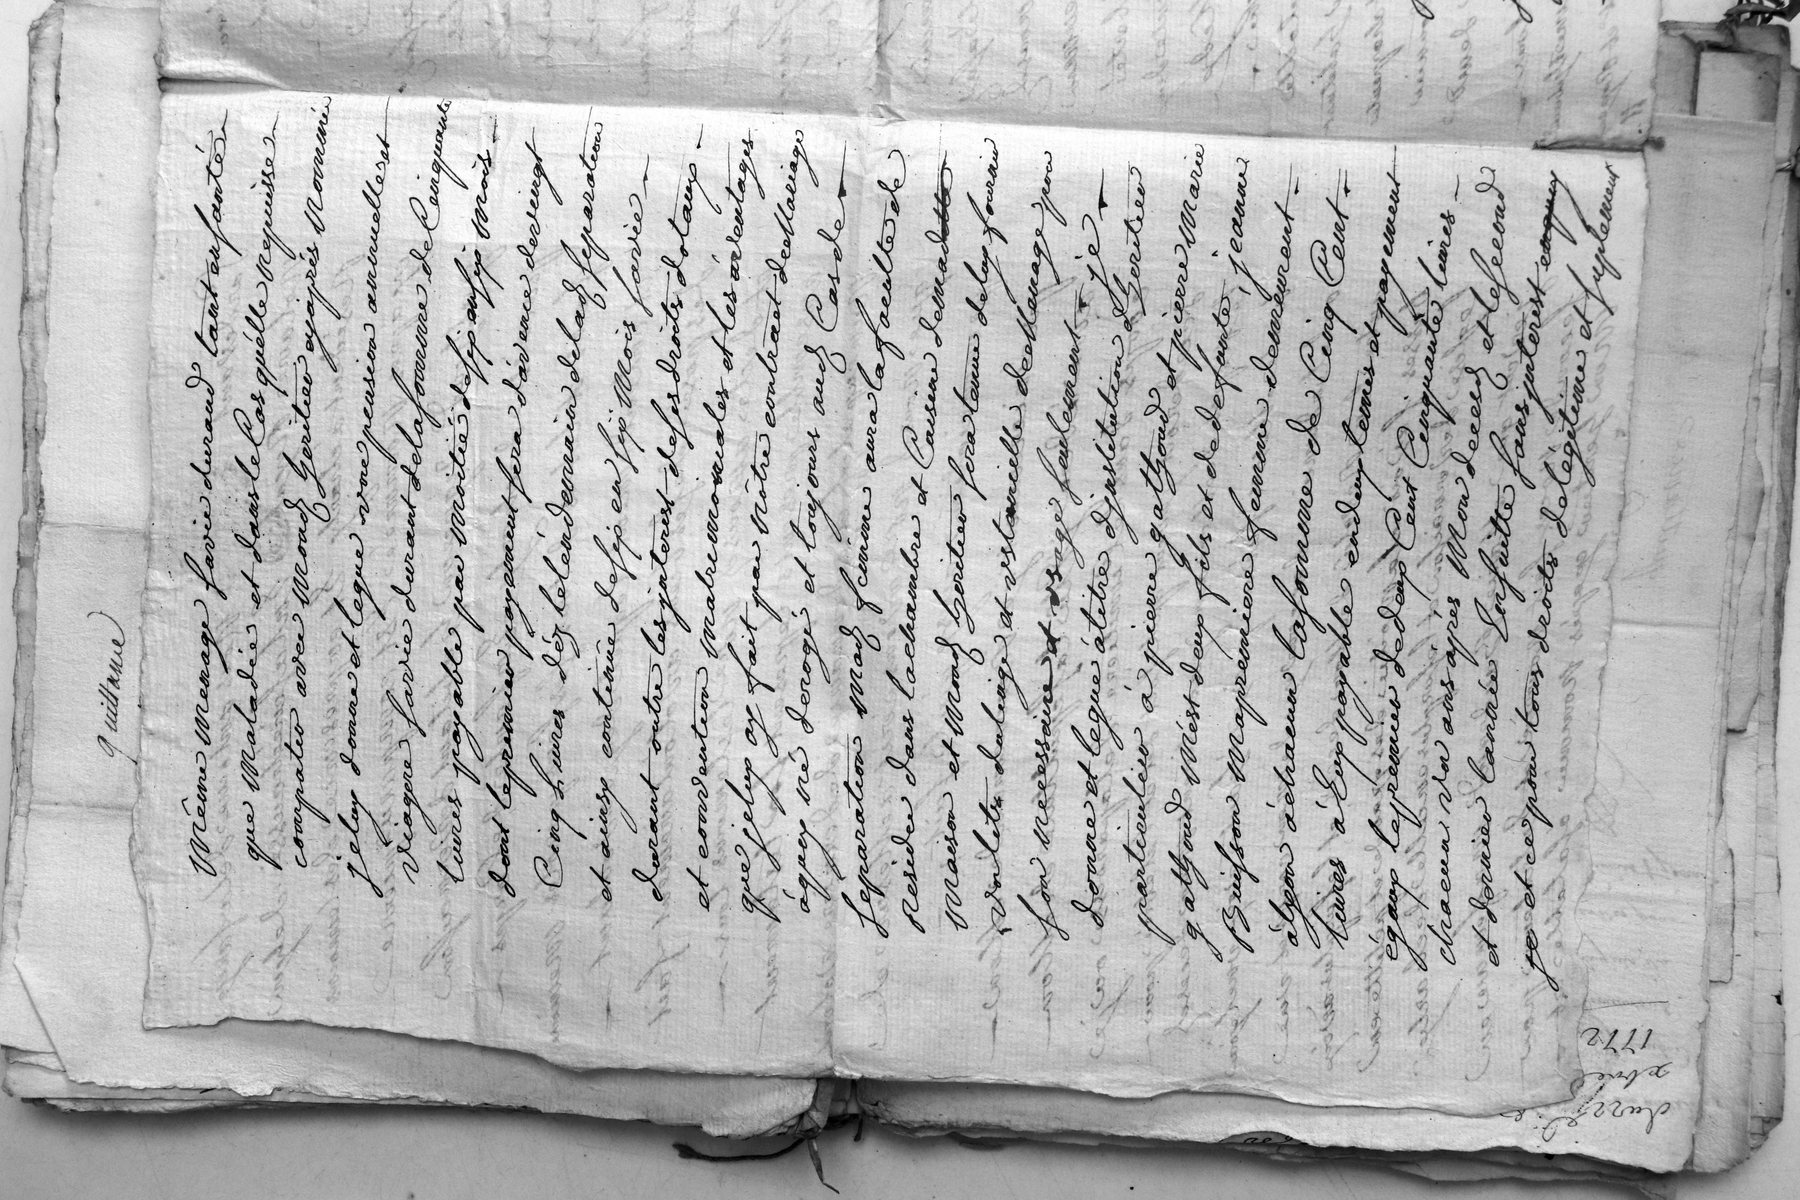 quittance
Même menage sa vie durand tant en santé
que Maladie et dans le Cas qu'elle ne puisse
compatir avec mond heritier cy après nommé
je luy donne et legue une pension annuelle et
viagere sa vie durant de la somme de Cinquante
livres payable par moitié de six en six mois
dont le premier payement sera d'avence de vingt
Cinq Livres dez le lendemain de lad separation
et ainsy continué de six en six Mois sa vie
durant outre les jnterest de ses droits dotaux
et convention matrimoniales et les aventages
que je luy ay fait par nôtre contract de Mariage
àquoy n'é derogé et toujours aud Cas de
separation mad femme aura la faculté de
Reside dans la chambre et Cuisine de mad
maison et mond heritier sera tenu de luy fournir
un lit du linge et ustancille de Menage pour
son necessaire et usage seulement je
donne et legue à titre d'jnstitution d'heritier
particulier à pierre gatgoud et pierre Marie
gatgoud Mes deux fils et de defunte jeanne
Buisson ma premiere femme demeurent
à lyon à chacun la somme de Cinq Cent
livres à Eux payable en deux termes et payement
egaux le premier de deux Cent Cinquante livres
chacun un ans après Mon decesd et le second
et dernier l'année Ensuitte sans jnterest
et ce pour tous droits de légitime et suplement
1772